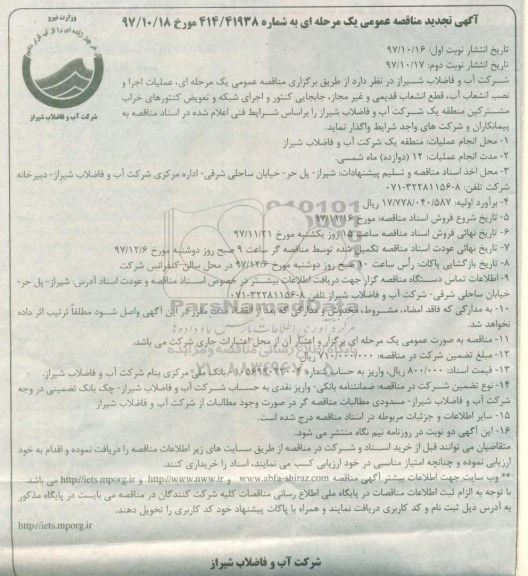 آگهی تجدید مناقصه عمومی یک مرحله ای به شماره ۴۱۴/۴۱۹۳۸ مورخ ۹۷/۱۰/۱۸
وزارت نیرو
شرکت آب و فاضلاب شیراز
تاریخ انتشار نوبت اول: ۹۷/۱۰/۱۶
تاریخ انتشار نوبت دوم: ۹۷/۱۰/۱۷
شرکت آب و فاضلاب شیراز در نظر دارد از طریق برگزاری مناقصه عمومی یک مرحله ای، عملیات اجرا و
نصب انشعاب آب، قطع انشعاب قدیمی و غیر مجاز، جابجایی کنتور و اجرای شبکه و تعویض کنتورهای خراب
مشترکین منطقه یک شرکت آب و فاضلاب شیراز را براساس شرایط فنی اعلام شده در اسناد مناقصه به
پیمانکاران و شرکت های واجد شرایط واگذار نماید.
۱- محل انجام عملیات: منطقه یک شرکت آب و فاضلاب شیراز
۲- مدت انجام عملیات: ۱۲ (دوازده) ماه شمسی.
۳- محل اخذ اسناد مناقصه و تسلیم پیشنهادات: شیراز- پل حر- خیابان ساحلی شرقی- اداره مرکزی شرکت آب و فاضلاب شیراز- دبیرخانه
شرکت تلفن: ۸-۳۲۲۸۱۱۵۶-۰۷۱
۴- برآورد اولیه: ۱۷/۷۷۸/۰۴۰/۵۸۷ ریال
۵- تاریخ شروع فروش اسناد مناقصه: مورخ
۶- تاریخ نهائی فروش اسناد مناقصه ساعت ۱۵ روز یکشنبه مورخ ۹۷/۱۱/۲۱
۷- تاریخ نهائی عودت اسناد مناقصه تکمیل شده توسط مناقصه گر ساعت ۹ صبح روز دوشنبه مورخ ۹۷/۱۲/۶
۸- تاریخ بازگشایی پاکات: رأس ساعت ۱۰ صبح روز دوشنبه مورخ ۹۷/۱۲/۶ در محل سالن کنفرانس شرکت
۹- اطلاعات تماس دستگاه مناقصه گزار جهت دریافت اطلاعات بیشتر در خصوص اسناد مناقصه و عودت اسناد آدرس: شیراز- پل حر-
خیابان ساحلی شرقی- شرکت آب و فاضلاب شیراز تلفن: ۸-۳۲۲۸۱۱۵۶-۰۷۱
۱۰- به مدارکی که فاقد امضاء، مشروط، مخدوش و مدارکی که بعد از انقضاء مدت مقرر در این آگهی واصل شود مطلقاً ترتیب اثر داده
نخواهد شد.
۱۱- مناقصه به صورت عمومی یک مرحله ای برگزار و اعتبار آن از محل اعتبارات جاری شرکت می باشد.
۱۲- مبلغ تضمین شرکت در مناقصه: ریال
۱۳- قیمت اسناد: ۸۰۰/۰۰۰ ریال، واریز به حساب شماره بانک ملی مرکزی بنام شرکت آب و فاضلاب شیراز.
۱۴- نوع تضمین شرکت در مناقصه: ضمانتنامه بانکی- واریز نقدی به حساب شرکت آب و فاضلاب شیراز- چک بانک تضمینی در وجه
شرکت آب و فاضلاب شیراز- مسدودی مطالبات مناقصه گر در صورت وجود مطالبات از شرکت آب و فاضلاب شیراز
۱۵- سایر اطلاعات و جزئیات مربوطه در اسناد مناقصه درج شده است.
۱۶- این آگهی دو نوبت در روزنامه نیم نگاه منتشر می شود.
متقاضیان می توانند قبل از خرید اسناد و شرکت در مناقصه از طریق سایت های زیر اطلاعات مناقصه را دریافت نموده و اقدام به خود
ارزیابی نموده و چنانچه امتیاز مناسبی در خود ارزیابی کسب می نمایند، اسناد را خریداری کنند.
** وب سایت جهت اطلاعات بیشتر آگهی مناقصه www.abfa-shiraz.com و http://www.nww.ir و http://iets.mporg.ir می باشد.
با توجه به الزام ثبت اطلاعات مناقصات در پایگاه ملی اطلاع رسانی مناقصات کلیه شرکت کنندگان در مناقصه می بایست در پایگاه مذکور
به آدرس ذیل ثبت نام و کد کاربری دریافت نمایند و همراه با پاکات پیشنهاد خود کد کاربری را تحویل دهند.
http://iets.mporg.ir
شرکت آب و فاضلاب شیراز